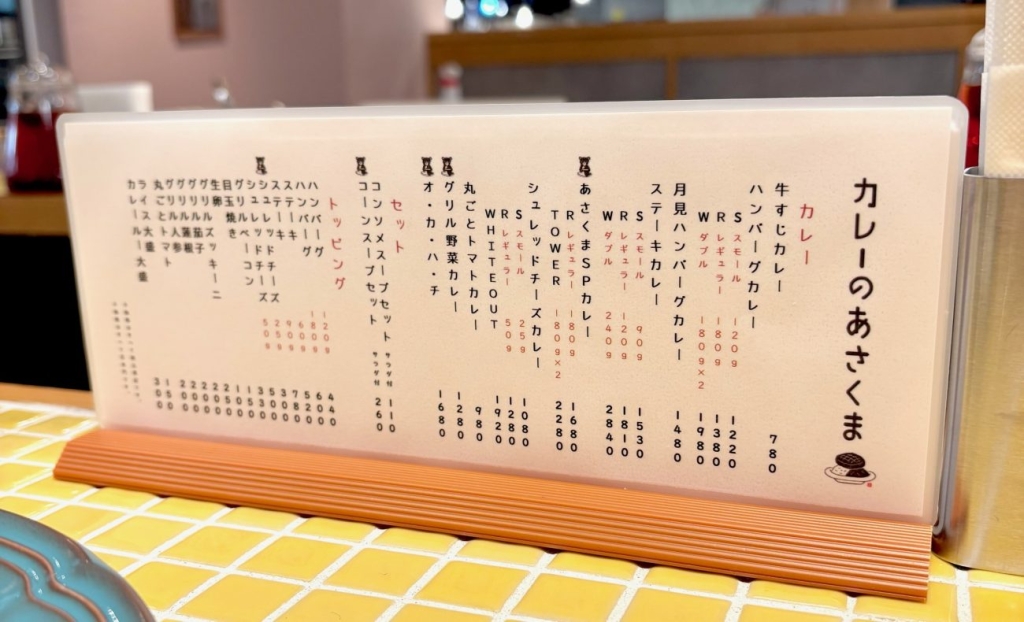 カレーのあさくま
カレー
牛すじカレー 780
ハンバーグカレー
S スモール 120g 1220
R レギュラー 180g 1380
W ダブル 180g×2 1980
月見ハンバーグカレー 1480
ステーキカレー
S スモール 90g 1530
R レギュラー 120g 1810
W ダブル 240g 2840
あさくまSPカレー
R レギュラー 180g 1680
TOWER 180g×2 2280
シュレッドチーズカレー
S スモール 25g 1080
R レギュラー 50g 1280
WHITEOUT 1920
丸ごとトマトカレー 980
グリル野菜カレー 1280
オ・カ・ハ・チ 1680
セット
コンソメスープセット サラダ付 110
コーンスープセット サラダ付 260
トッピング
ハンバーグ 120g
ハンバーグ 180g
ステーキ 60g
ステーキ 90g
シュレッドチーズ 25g
シュレッドチーズ 50g
グリルベーコン
目玉焼き
生卵
グリルズッキーニ
グリル茄子
グリル蓮根
グリル人参
グリルトマト
丸ごとトマト
カレールー大盛
ライス大盛